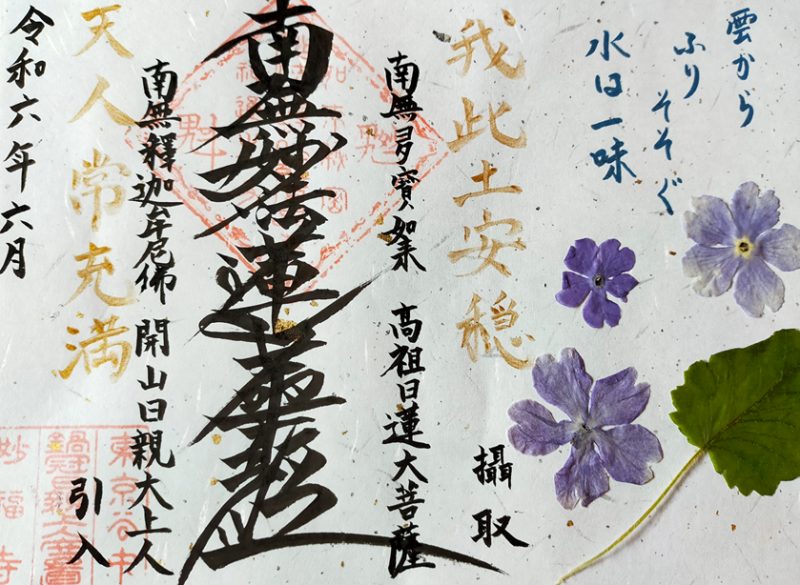 雲から
ふり
そそぐ
水は一味
攝取
我此土安穏
南無多寶如来 高祖日蓮大菩薩
南無妙法蓮華經
南無釋迦牟尼佛 開山日親大上人
引入
天人常充満
令和六年六月
東京谷中
妙福寺